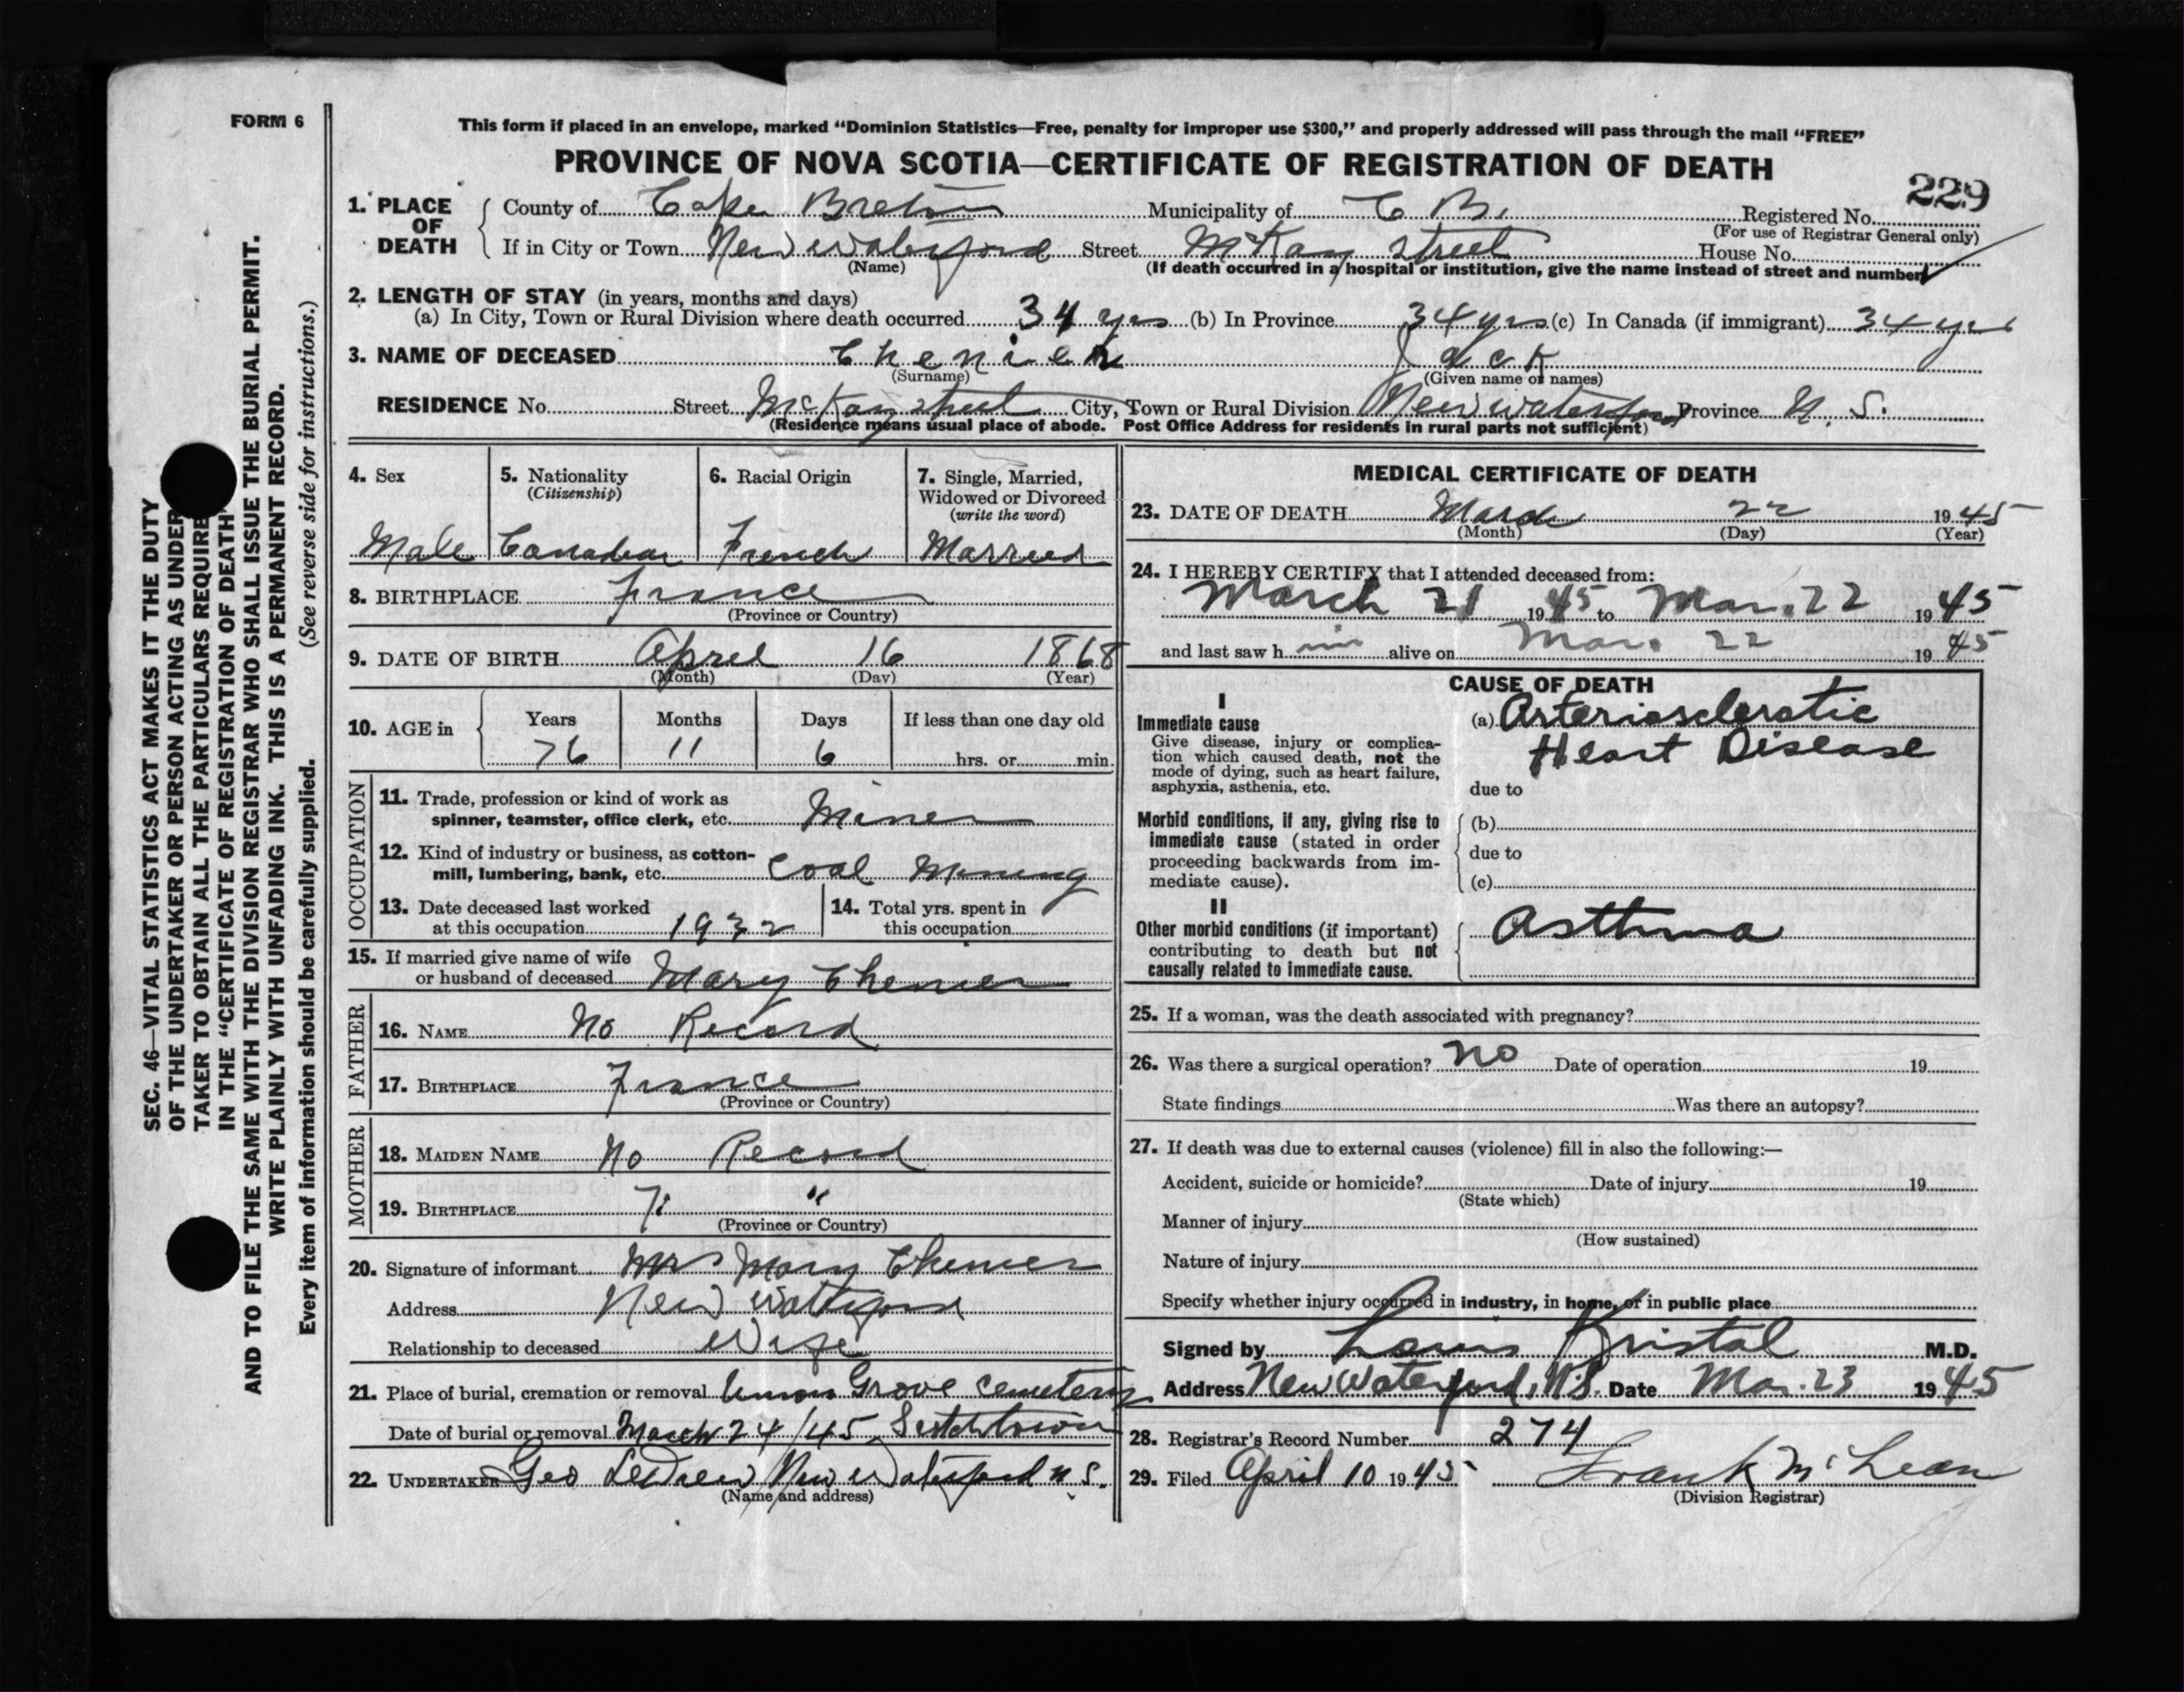 FORM 6
SEC. 46—VITAL STATISTICS ACT MAKES IT THE DUTY
OF THE UNDERTAKER OR PERSON ACTING AS UNDER
TAKER TO OBTAIN ALL THE PARTICULARS REQUIRE
IN THE "CERTIFICATE OF REGISTRATION OF DEATH"
AND TO FILE THE SAME WITH THE DIVISION REGISTRAR WHO SHALL ISSUE THE BURIAL PERMIT.
WRITE PLAINLY WITH UNFADING INK. THIS IS A PERMANENT RECORD.
Every item of information should be carefully supplied. (See reverse side for instructions.)
This form if placed in an envelope, marked "Dominion Statistics—Free, penalty for improper use $300," and properly addressed will pass through the mail "FREE"
PROVINCE OF NOVA SCOTIA—CERTIFICATE OF REGISTRATION OF DEATH
229
1. PLACE OF DEATH County of Cape Breton Municipality of C B. Registered No.
(For use of Registrar General only)
If in City or Town New Waterford Street McKay Street House No.
(Name) (If death occurred in a hospital or institution, give the name instead of street and number)
2. LENGTH OF STAY (in years, months and days)
(a) In City, Town or Rural Division where death occurred 34 yrs (b) In Province 34 yrs (c) In Canada (if immigrant) 34 yrs
3. NAME OF DECEASED Chenier Jack
(Surname) (Given name or names)
RESIDENCE No. Street McKay street City, Town or Rural Division New Waterford Province N. S.
(Residence means usual place of abode. Post Office Address for residents in rural parts not sufficient)
4. Sex Male
5. Nationality (Citizenship) Canadian
6. Racial Origin French
7. Single, Married, Widowed or Divorced (write the word) Married
8. BIRTHPLACE France
(Province or Country)
9. DATE OF BIRTH April 16 1868
(Month) (Day) (Year)
10. AGE in Years Months Days If less than one day old
76 11 6 hrs. or min.
OCCUPATION
11. Trade, profession or kind of work as
spinner, teamster, office clerk, etc. Miner
12. Kind of industry or business, as cotton-
mill, lumbering, bank, etc. Coal Mining
13. Date deceased last worked
at this occupation 1932
14. Total yrs. spent in
this occupation
15. If married give name of wife
or husband of deceased Mary Chenier
FATHER
16. NAME No Record
17. BIRTHPLACE France
(Province or Country)
MOTHER
18. MAIDEN NAME No Record
19. BIRTHPLACE "
(Province or Country)
20. Signature of informant Mrs Mary Chenier
Address New Waterford
Relationship to deceased Wife
21. Place of burial, cremation or removal Grove Cemetery
Date of burial or removal March 24/45 Scotchtown
22. UNDERTAKER Geo New Waterford N S.
(Name and address)
MEDICAL CERTIFICATE OF DEATH
23. DATE OF DEATH March 22 1945
(Month) (Day) (Year)
24. I HEREBY CERTIFY that I attended deceased from:
March 21 1945 to Mar. 22 1945
and last saw h im alive on Mar. 22 1945
CAUSE OF DEATH
I
Immediate cause (a) Arteriosclerotic
Heart Disease
Give disease, injury or complica-
tion which caused death, not the
mode of dying, such as heart failure,
asphyxia, asthenia, etc. due to
Morbid conditions, if any, giving rise to (b)
immediate cause (stated in order
proceeding backwards from im- due to
mediate cause). (c)
II
Other morbid conditions (if important) Asthma
contributing to death but not
causally related to immediate cause.
25. If a woman, was the death associated with pregnancy?
26. Was there a surgical operation? No Date of operation 19
State findings Was there an autopsy?
27. If death was due to external causes (violence) fill in also the following:—
Accident, suicide or homicide? Date of injury 19
(State which)
Manner of injury
(How sustained)
Nature of injury
Specify whether injury occurred in industry, in home, or in public place
Signed by Louis Kristal M.D.
Address New Waterford, N.S. Date Mar. 23 1945
28. Registrar's Record Number 274
29. Filed April 10 1945 Frank McLean
(Division Registrar)